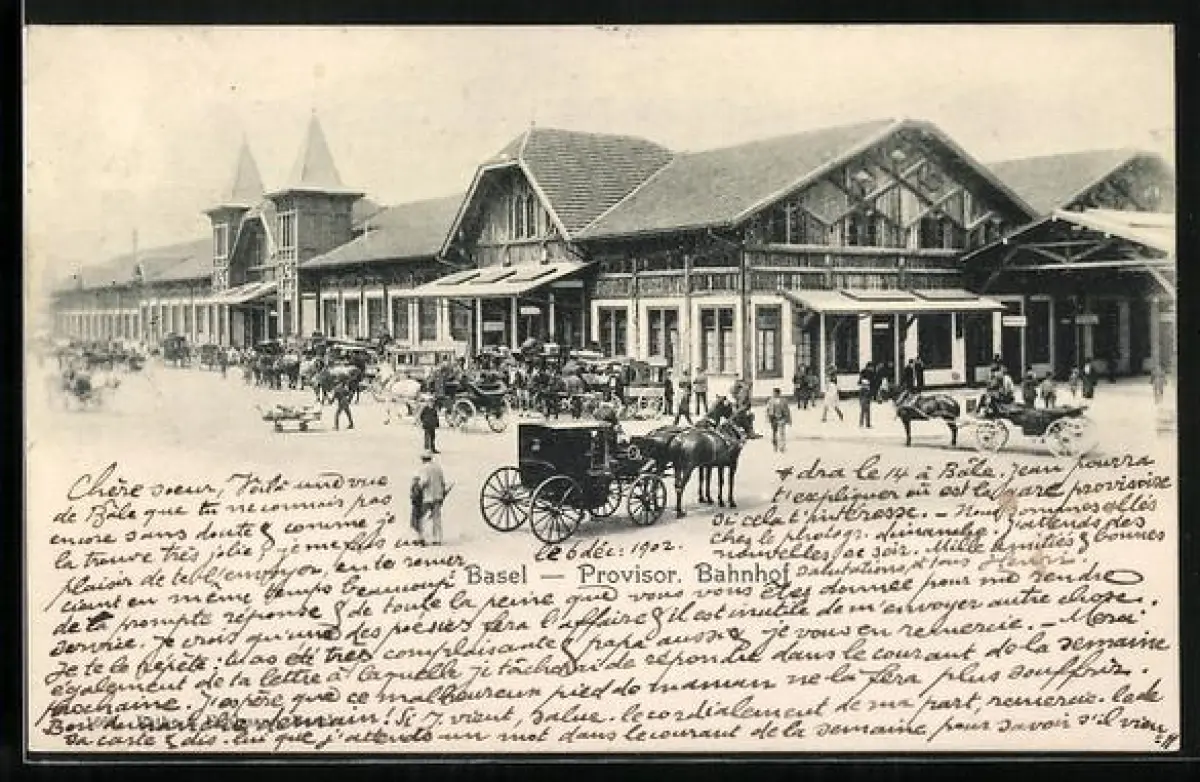 Chère sœur, Voilà une vue
de Bâle que tu ne connais pas
encore sans doute & comme je
la trouve très jolie, je me fais un
plaisir de te l'envoyer, en te remer-
ciant en même temps beaucoup
de ta prompte réponse & de toute la peine que vous vous êtes donnée pour me rendre
service. Je crois qu'une des poésies fera l'affaire & il est inutile de m'envoyer autre chose.
Je te le répète: tu as été très complaisante & papa aussi & je vous en remercie. – Merci
également de ta lettre à laquelle je tâcherai de répondre dans le courant de la semaine
prochaine. J'espère que ce malheureux pied de maman ne la fera plus souffrir.
Bonj. Germain! Si y vient, salue-le cordialement de ma part, remercie-le de
sa carte & dis-lui que j'attends un mot dans le courant de la semaine pour savoir s'il vien-
dra le 14 à Bâle. Jean pourra
t'expliquer où est la gare provisoire
si cela t'intéresse. – Nous sommes allés
chez le photogr. dimanche; j'attends des
nouvelles ce soir. Mille amitiés & bonnes
salutations à tous Henri.
le 6 déc: 1902.
Basel — Provisor. Bahnhof